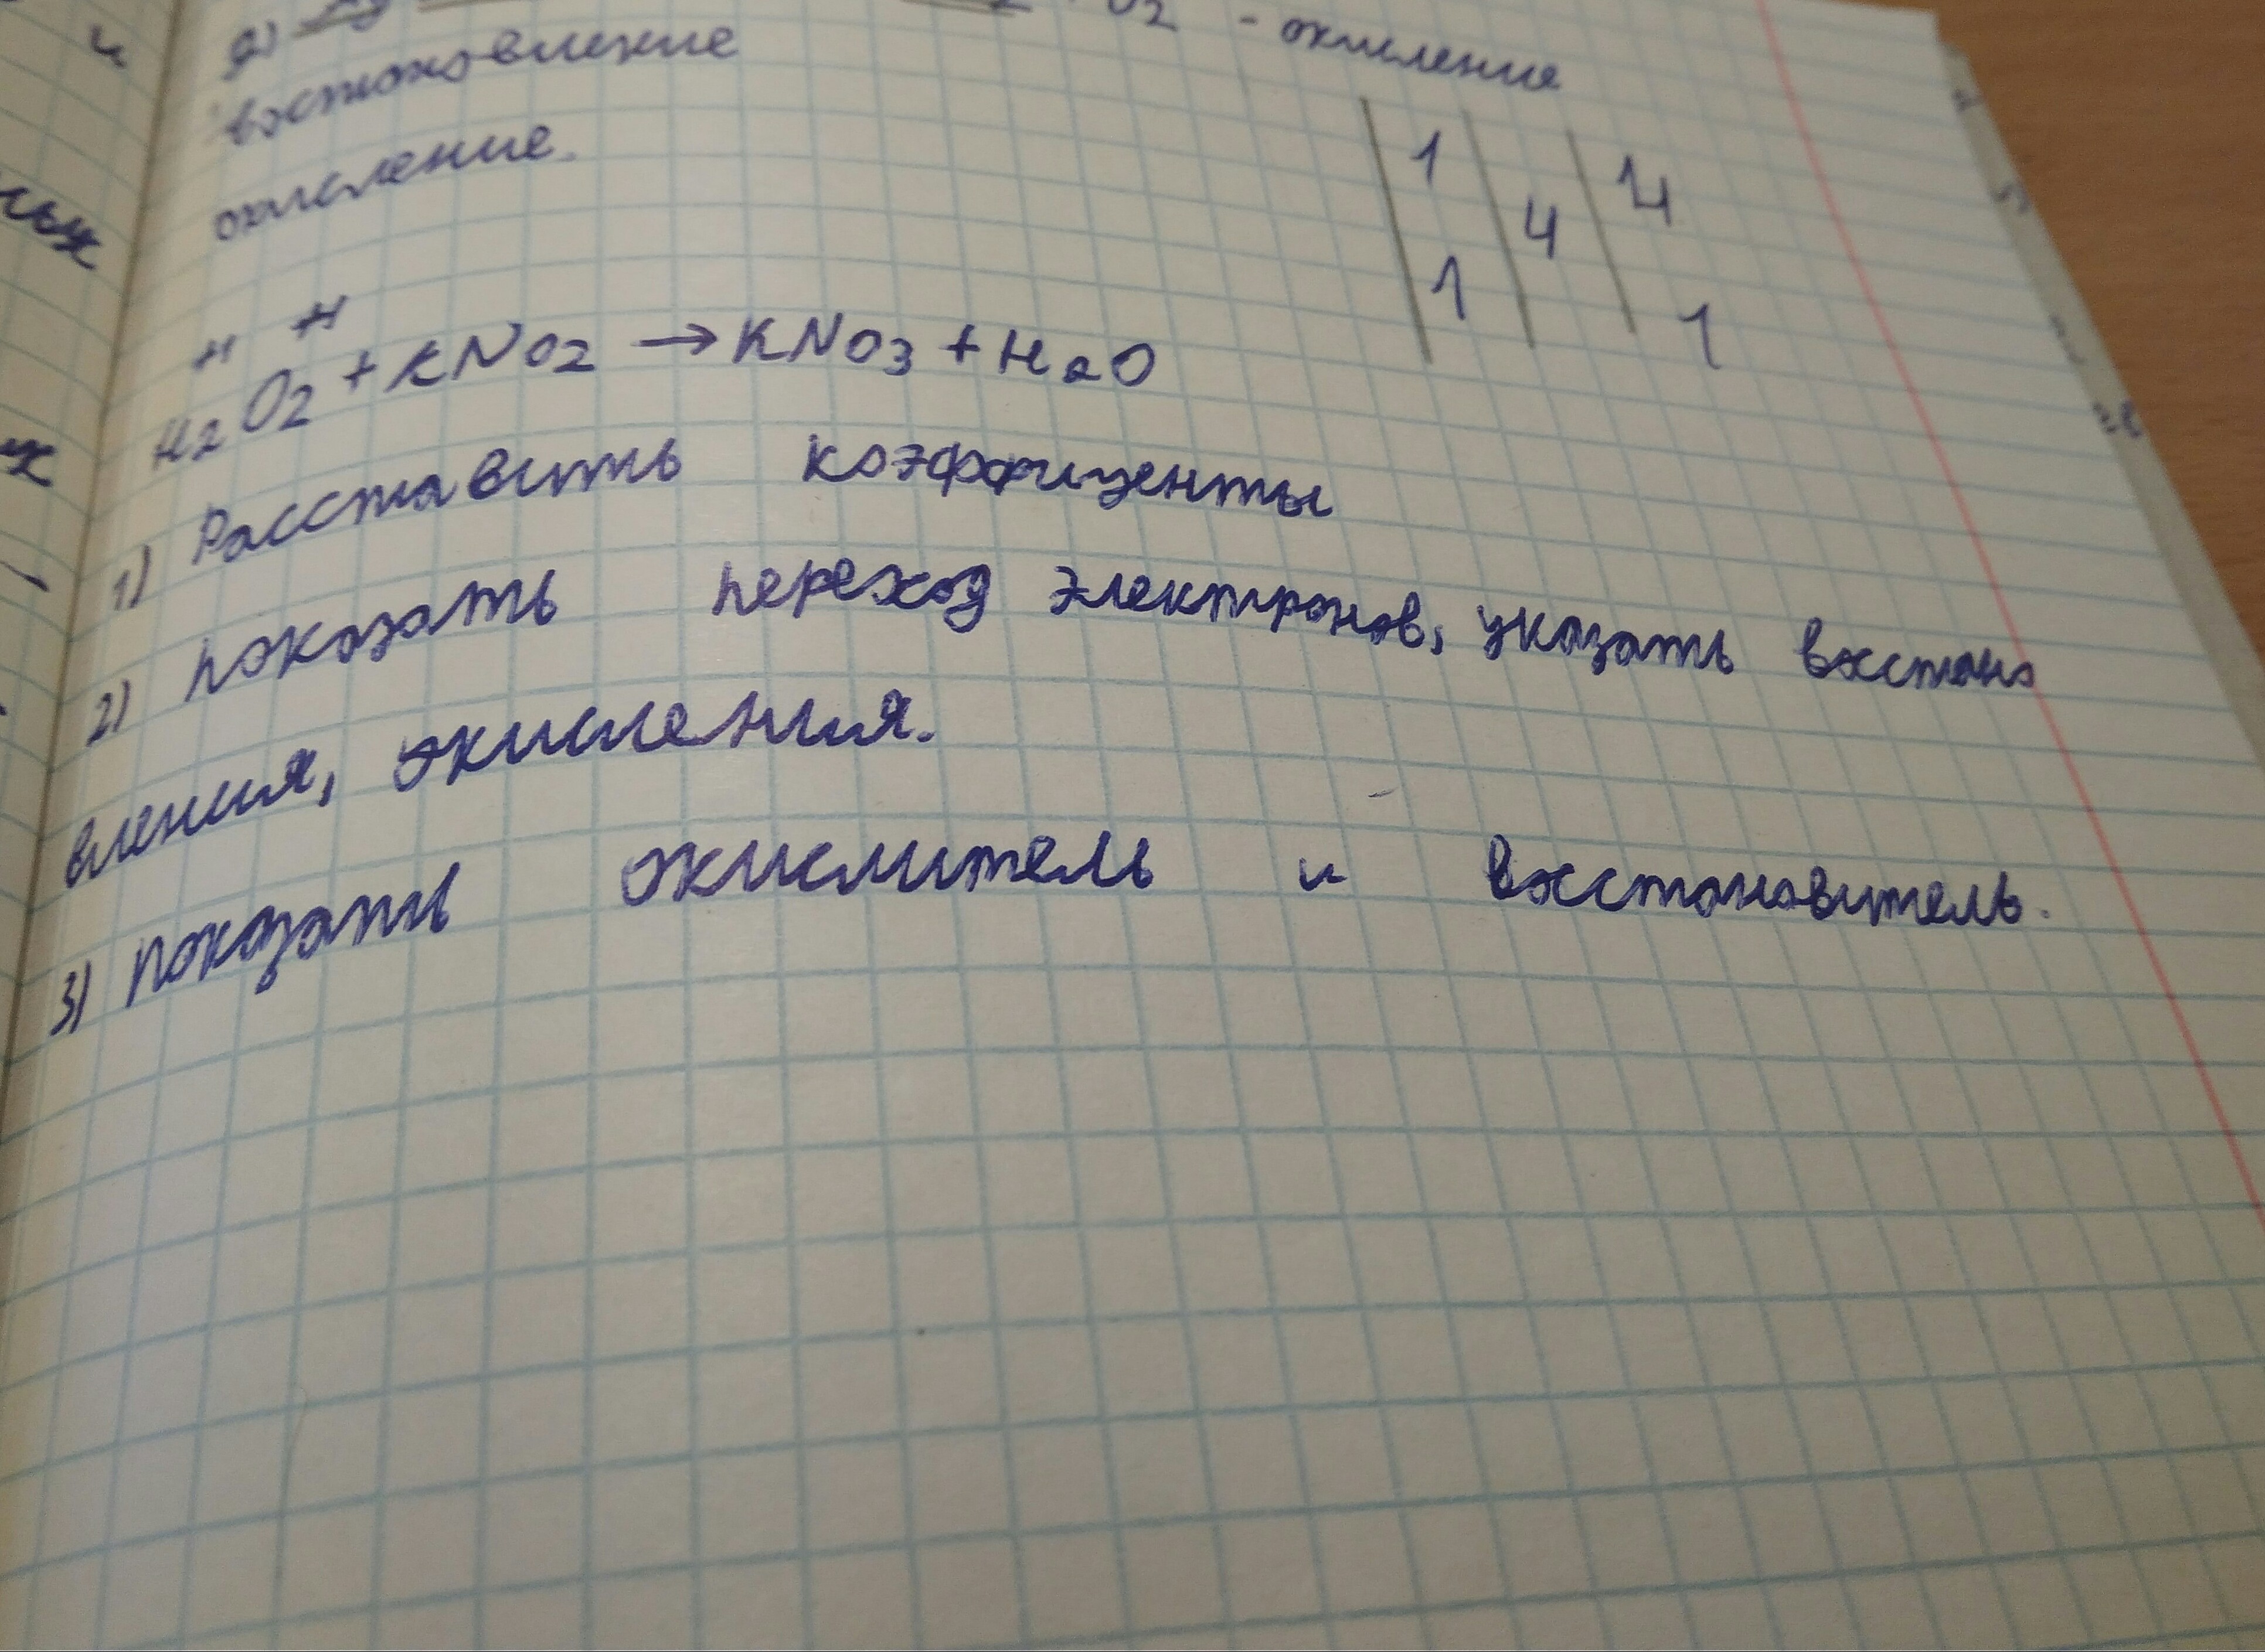 и
2)
O2 - окисление
востоновление
окисление.
1 4 4
1 1
H2O2 + KNO2 → KNO3 + H2O
1) Расставить коэффициенты
2) показать переход электронов, указать восстано
вления, окисления.
3) показать окислитель и восстановитель.